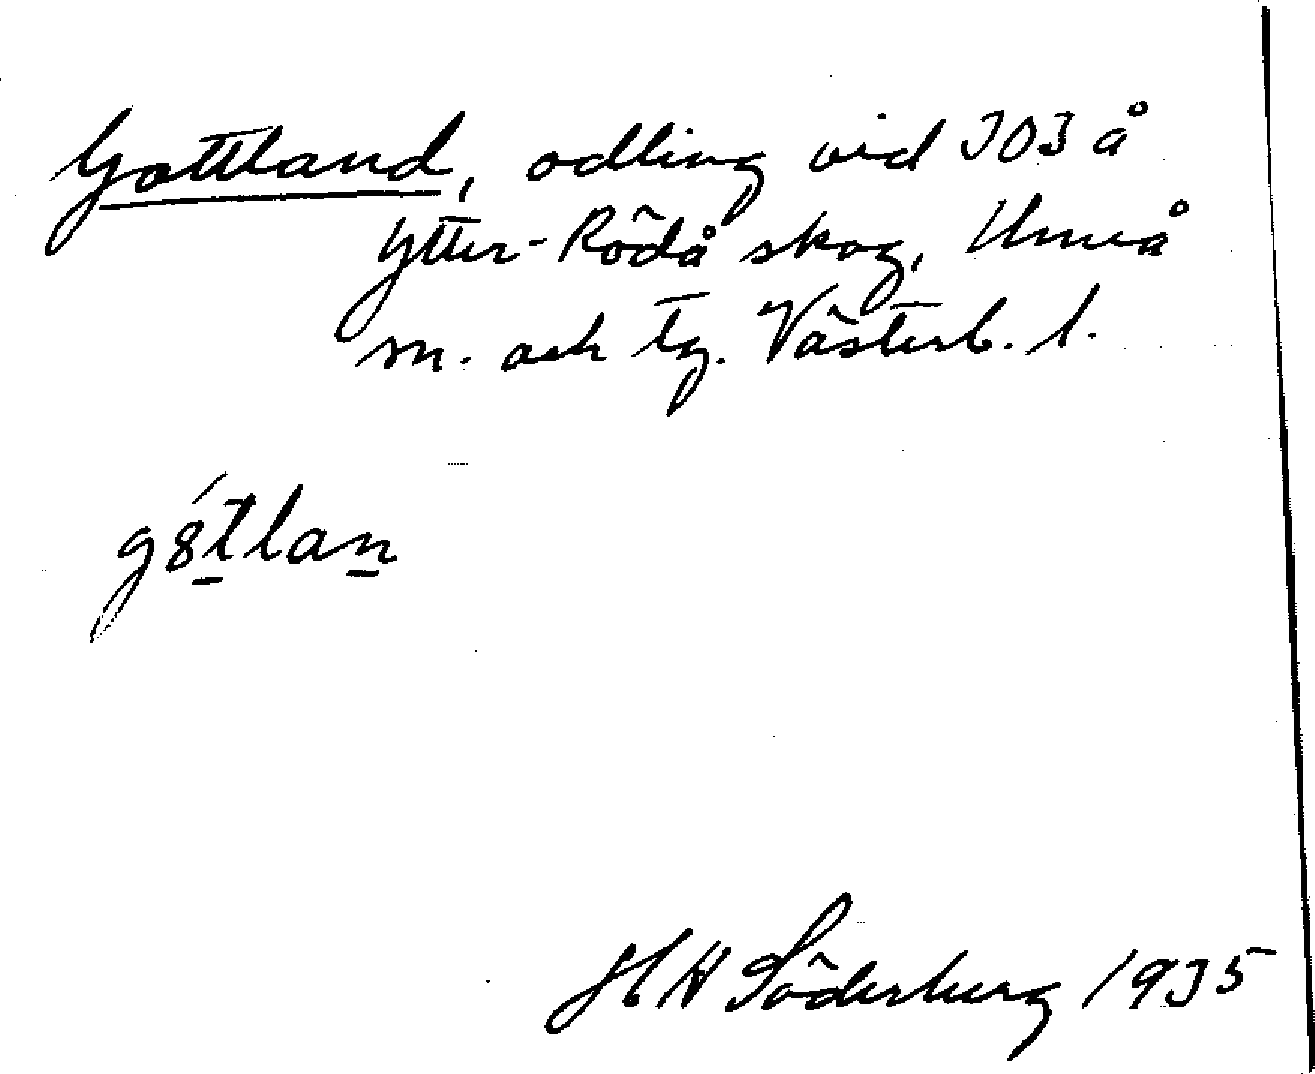 Gottland, odling vid 303 å
Ytter-Rödå skog, Umeå
m. och tg. Västerb. l.
g8́tlan
H H Söderberg 1935